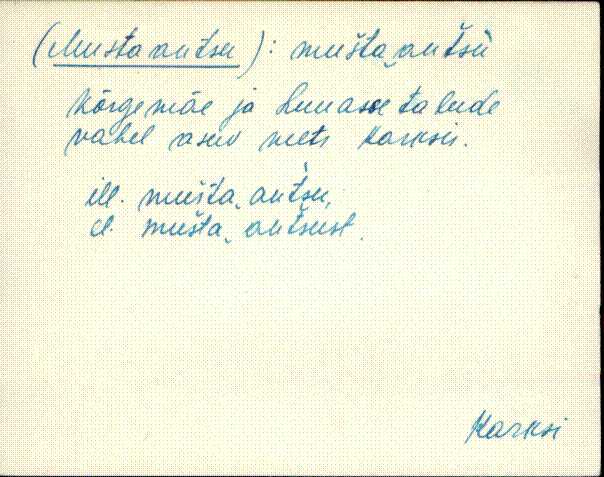 (Musta antsu): mušta‿antšu
Kõrgemäe ja Lunasse talude
vahel asuv mets Karksis.
ill. mušta‿antšu,
el. mušta‿antšust.
Karksi